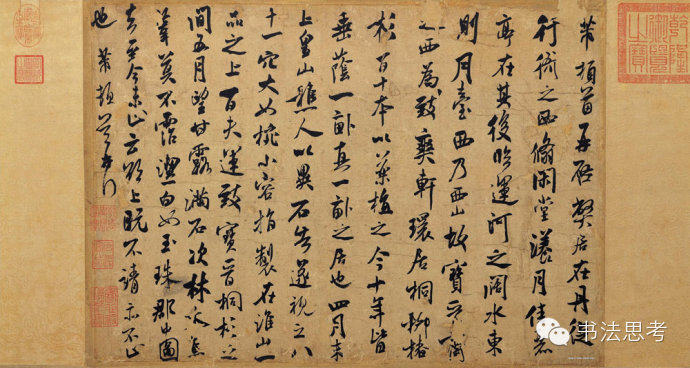 芾頓首再啓弊居在丹徒
行衙之西翛閑堂漾月佳麗
亭在其後臨運河之闊水東
則月臺西乃西山故寶晉齋
之西為致爽軒環居桐柳椿
杉百十本以藥植之今十年皆
垂蔭一畝真一畝之居也四月末
上皇山樵人以異石告遂視之八
十一穴大如椀小容指製在淮山一
品之上百夫運致寶晉桐杉之
間五月望甘露滿石次林木焦
葦莫不霑潔白如玉珠郡中圖
去至今未止云欲上既不請亦不止
也 芾頓首
乾隆御覽之寶
书法思考